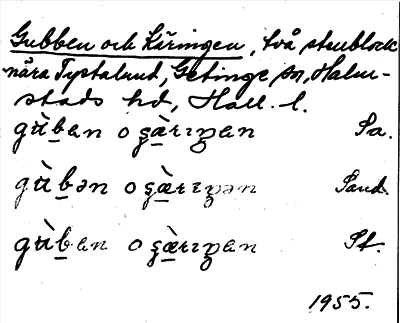 Gubben och Käringen, två stenblock
nära Tystalund, Getinge sn, Halm-
stads hd, Hall. l.
gùb̲an o ʂæ̀rɪŋan Sa.
gùb̲ən o ʂæ̀rɪŋən Sand.
gùb̲an o ʂæ̀rɪŋan St.
1955.